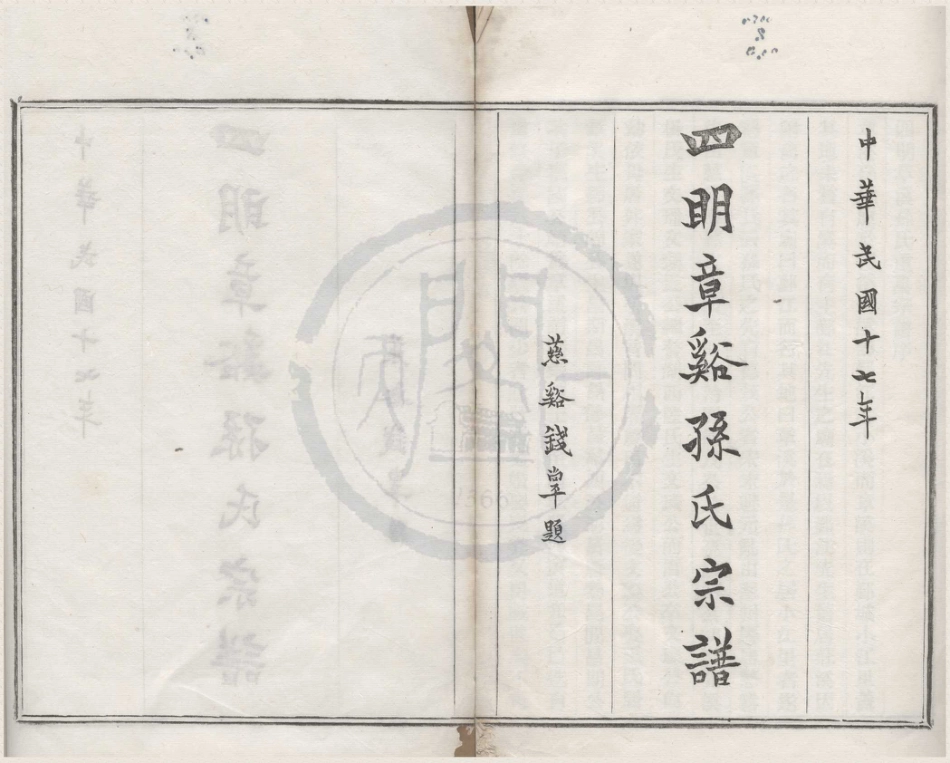 中華民國十七年
四明章谿孫氏宗譜
慈谿錢罕題
1566